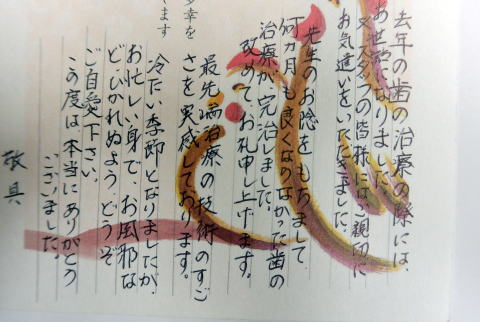 去年の歯の治療の際には、
お世話になりました。
又スタッフの皆様にはご親切に
お気遣いをいただきました。
先生のお陰をもちまして
何カ月も良くならなかった歯の
治療が完治しました。
改めてお礼申し上げます。
最先端治療の技術のすご
さを実感しております。
冷たい季節となりましたが、
お忙しい身で、お風邪な
どひかれぬようどうぞ
ご自愛下さい。
この度は、本当にありがとう
ございました。
敬具
多幸を
ます